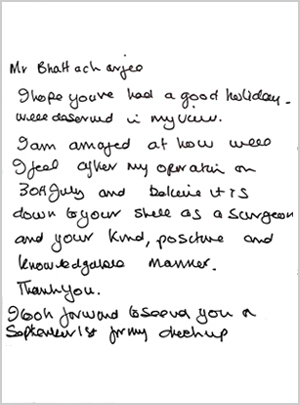 Mr Bhattacharjee
I hope you've had a good holiday -
well deserved in my view.
I am amazed at how well
I feel after my operation on
30th July and believe it is
down to your skill as a surgeon
and your kind, positive and
knowledgeable manner.
Thank you.
I look forward to seeing you on
September 1st for my checkup